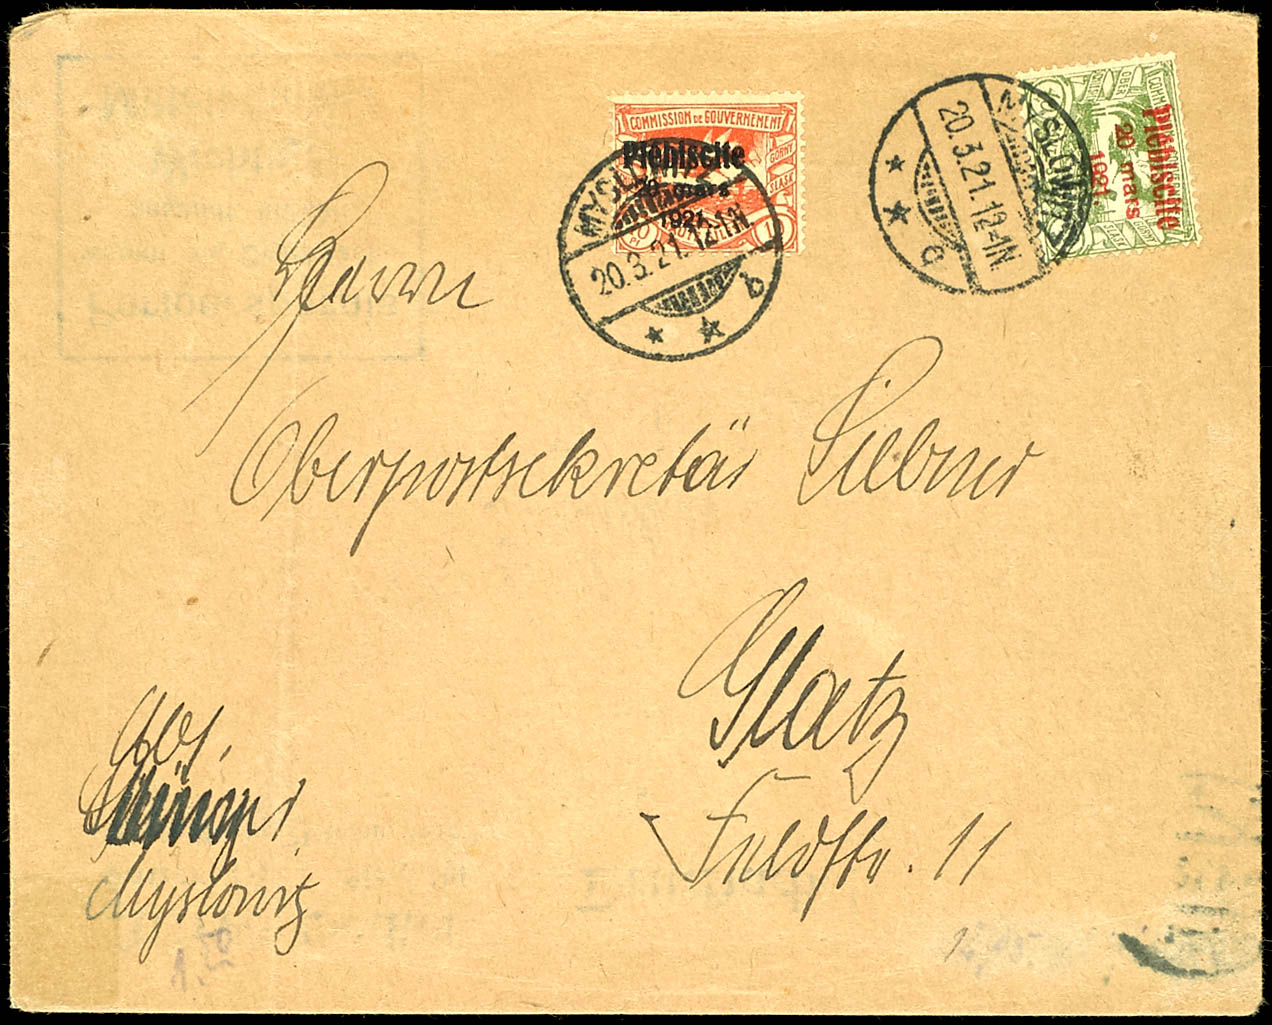 COMMISSION DE GOUVERNEMENT
GÓRNY
ŚLĄSK
Plébiscite
20 mars
1921.
MYSLOWITZ
20.3.21.12-1N.
b
* *
COMMISSION
OBER
GÓRNY
ŚLĄSK
Plébiscite
20 mars
1921.
MYSLOWITZ
20.3.21.12-1N.
b
* *
Herrn
Oberpostsekretär
Glatz
Feldstr. 11
Abs.
Myslowitz